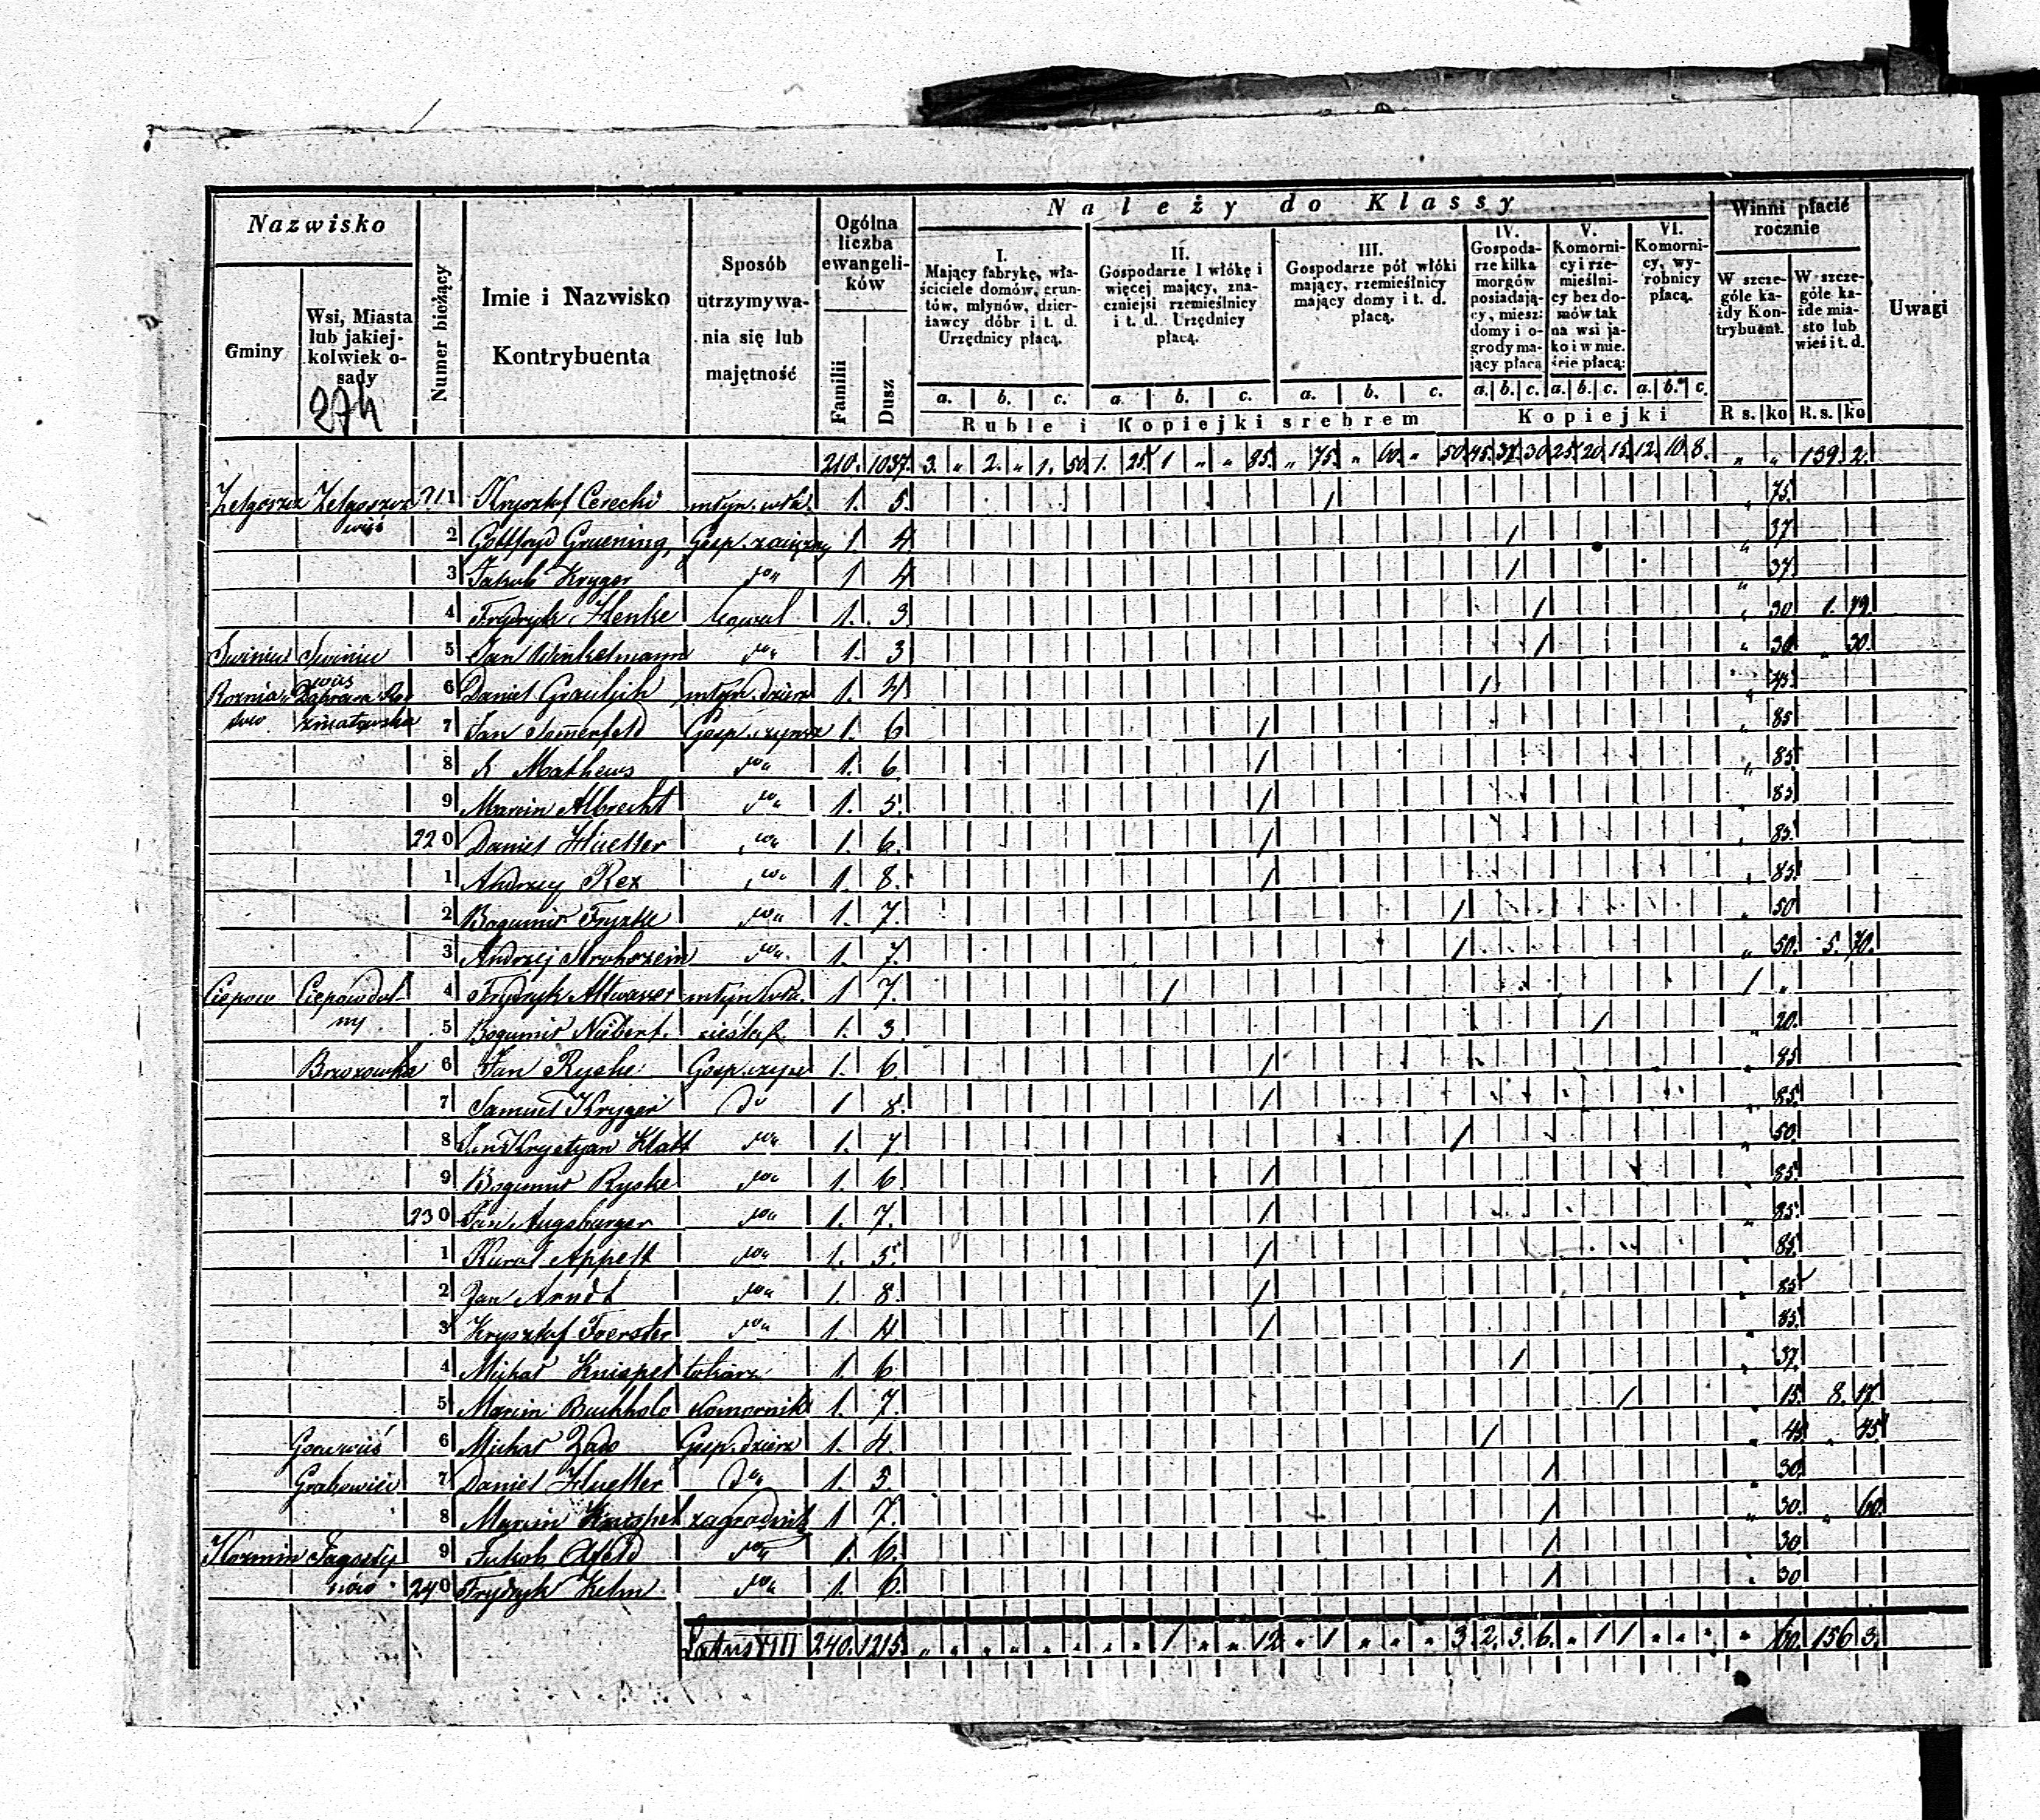 Nazwisko
Gminy
Wsi, Miasta lub jakiej-kolwiek o-sady
274
Numer bieżący
Imie i Nazwisko Kontrybuenta
Sposób utrzymywa-nia się lub majętność
Ogólna liczba ewangeli-ków
Familii
Dusz
Należy do Klassy
I. Mający fabrykę, wła-ściciele domów, grun-tów, młynów, dzier-żawcy dóbr i t. d. Urzędnicy płacą.
II. Gospodarze I włókę i więcej mający, zna-czniejsi rzemieślnicy i t. d. Urzędnicy płacą.
III. Gospodarze pół włóki mający, rzemieślnicy mający domy i t. d. płacą.
IV. Gospoda-rze kilka morgów posiadają-cy, miesz: domy i o-grody ma-jący płacą
V. Komorni-cy i rze-mieślni-cy bez do-mów tak na wsi ja-ko i w mie-ście płacą:
VI. Komorni-cy, wy-robnicy płacą.
Winni płacić rocznie
W szcze-góle ka-żdy Kon-trybuent.
W szcze-góle ka-żde mia-sto lub wieś i t. d.
Uwagi
a. b. c. a. b. c. a. b. c. a. b. c. a. b. c. a. b. c.
Ruble i Kopiejki srebrem
Kopiejki
R s. ko R. s. ko
210. 1037. 3. " 2. " 1. 50. 1. 25. 1 " " 85. " 75. " 60. " 50. 45. 37. 30. 25. 20. 15. 12. 10. 8. " " 139. 2.
Zelgoszcz Zelgoszcz wieś 211 Krysztof Cerecki młyn. wła. 1. 5. 1 " 75.
2 Gottfryd Gruening Gosp. 1. 4 1 " 37
3 Jakob Kryger do 1 4 1 " 37
4 Frydryk Henke Kowal 1. 3 1 " 30 1. 79.
Swinice Swinice wieś 5 Jan Winkelmann do 1. 3 1 " 30 " 30.
Rozniatow Dąbrowa Rozniatowska 6 Daniel Graulich młyn. dzierz 1. 4 1 " 45
7 Jan Somerfeld Gosp. czynsz 1. 6 1 " 85
8 K Mathews do 1. 6. 1 " 85
9 Marcin Albrecht do 1. 5. 1 " 85
220 Daniel Hüller do 1. 6. 1 " 85.
1 Andrzey Rex do 1. 8. 1 " 85.
2 Bogumił Fryske do 1. 7. 1 " 50
3 Andrzej do 1. 7. 1 " 50. 5. 70.
Ciepow Ciepów dol-ny 4 Frydryk młyn wła. 1 7. 1 1 "
5 Bogumił Niebert. cieśla 1. 3. 1 " 20.
Brzozowka 6 Jan Ryske Gosp. czyn 1. 6. 1 " 85
7 Samuel Kryger do 1 8. 1 " 85.
8 Jan Krystyan Klatt do 1. 7 1 " 50.
9 Bogumił Ryske do 1. 6. 1 " 85.
230 Jan Augsburger do 1. 7. 1 " 85.
1 Karol Appelt do 1. 5. 1 " 85.
2 Jan Arndt do 1. 8. 1 " 85
3 Krysztof Foerster do 1. 4 1 " 85.
4 Michał Knispel tokarz 1. 6 1 " 37.
5 Marcin Buchholc Komornik 1. 7. 1 " 15. 8. 17.
6 Michał Gosp. dzierz 1. 4. 1 " 45. " 45.
Grabowiec 7 Daniel Hueller do 1. 5. 1 " 30.
8 Marcin Knispel zagrodnik 1 7. 1 " 30. " 60.
Kozmin 9 Jakob Afeld do 1. 6. 1 " 30
240 Frydryk Kelm do 1. 6. 1 " 30
Latus VIII 240. 1215. " " " " " " " " 1 " " 12. " 1 " " " 3. 2. 3. 6. " 1 1 " " " " 60. 156 3.